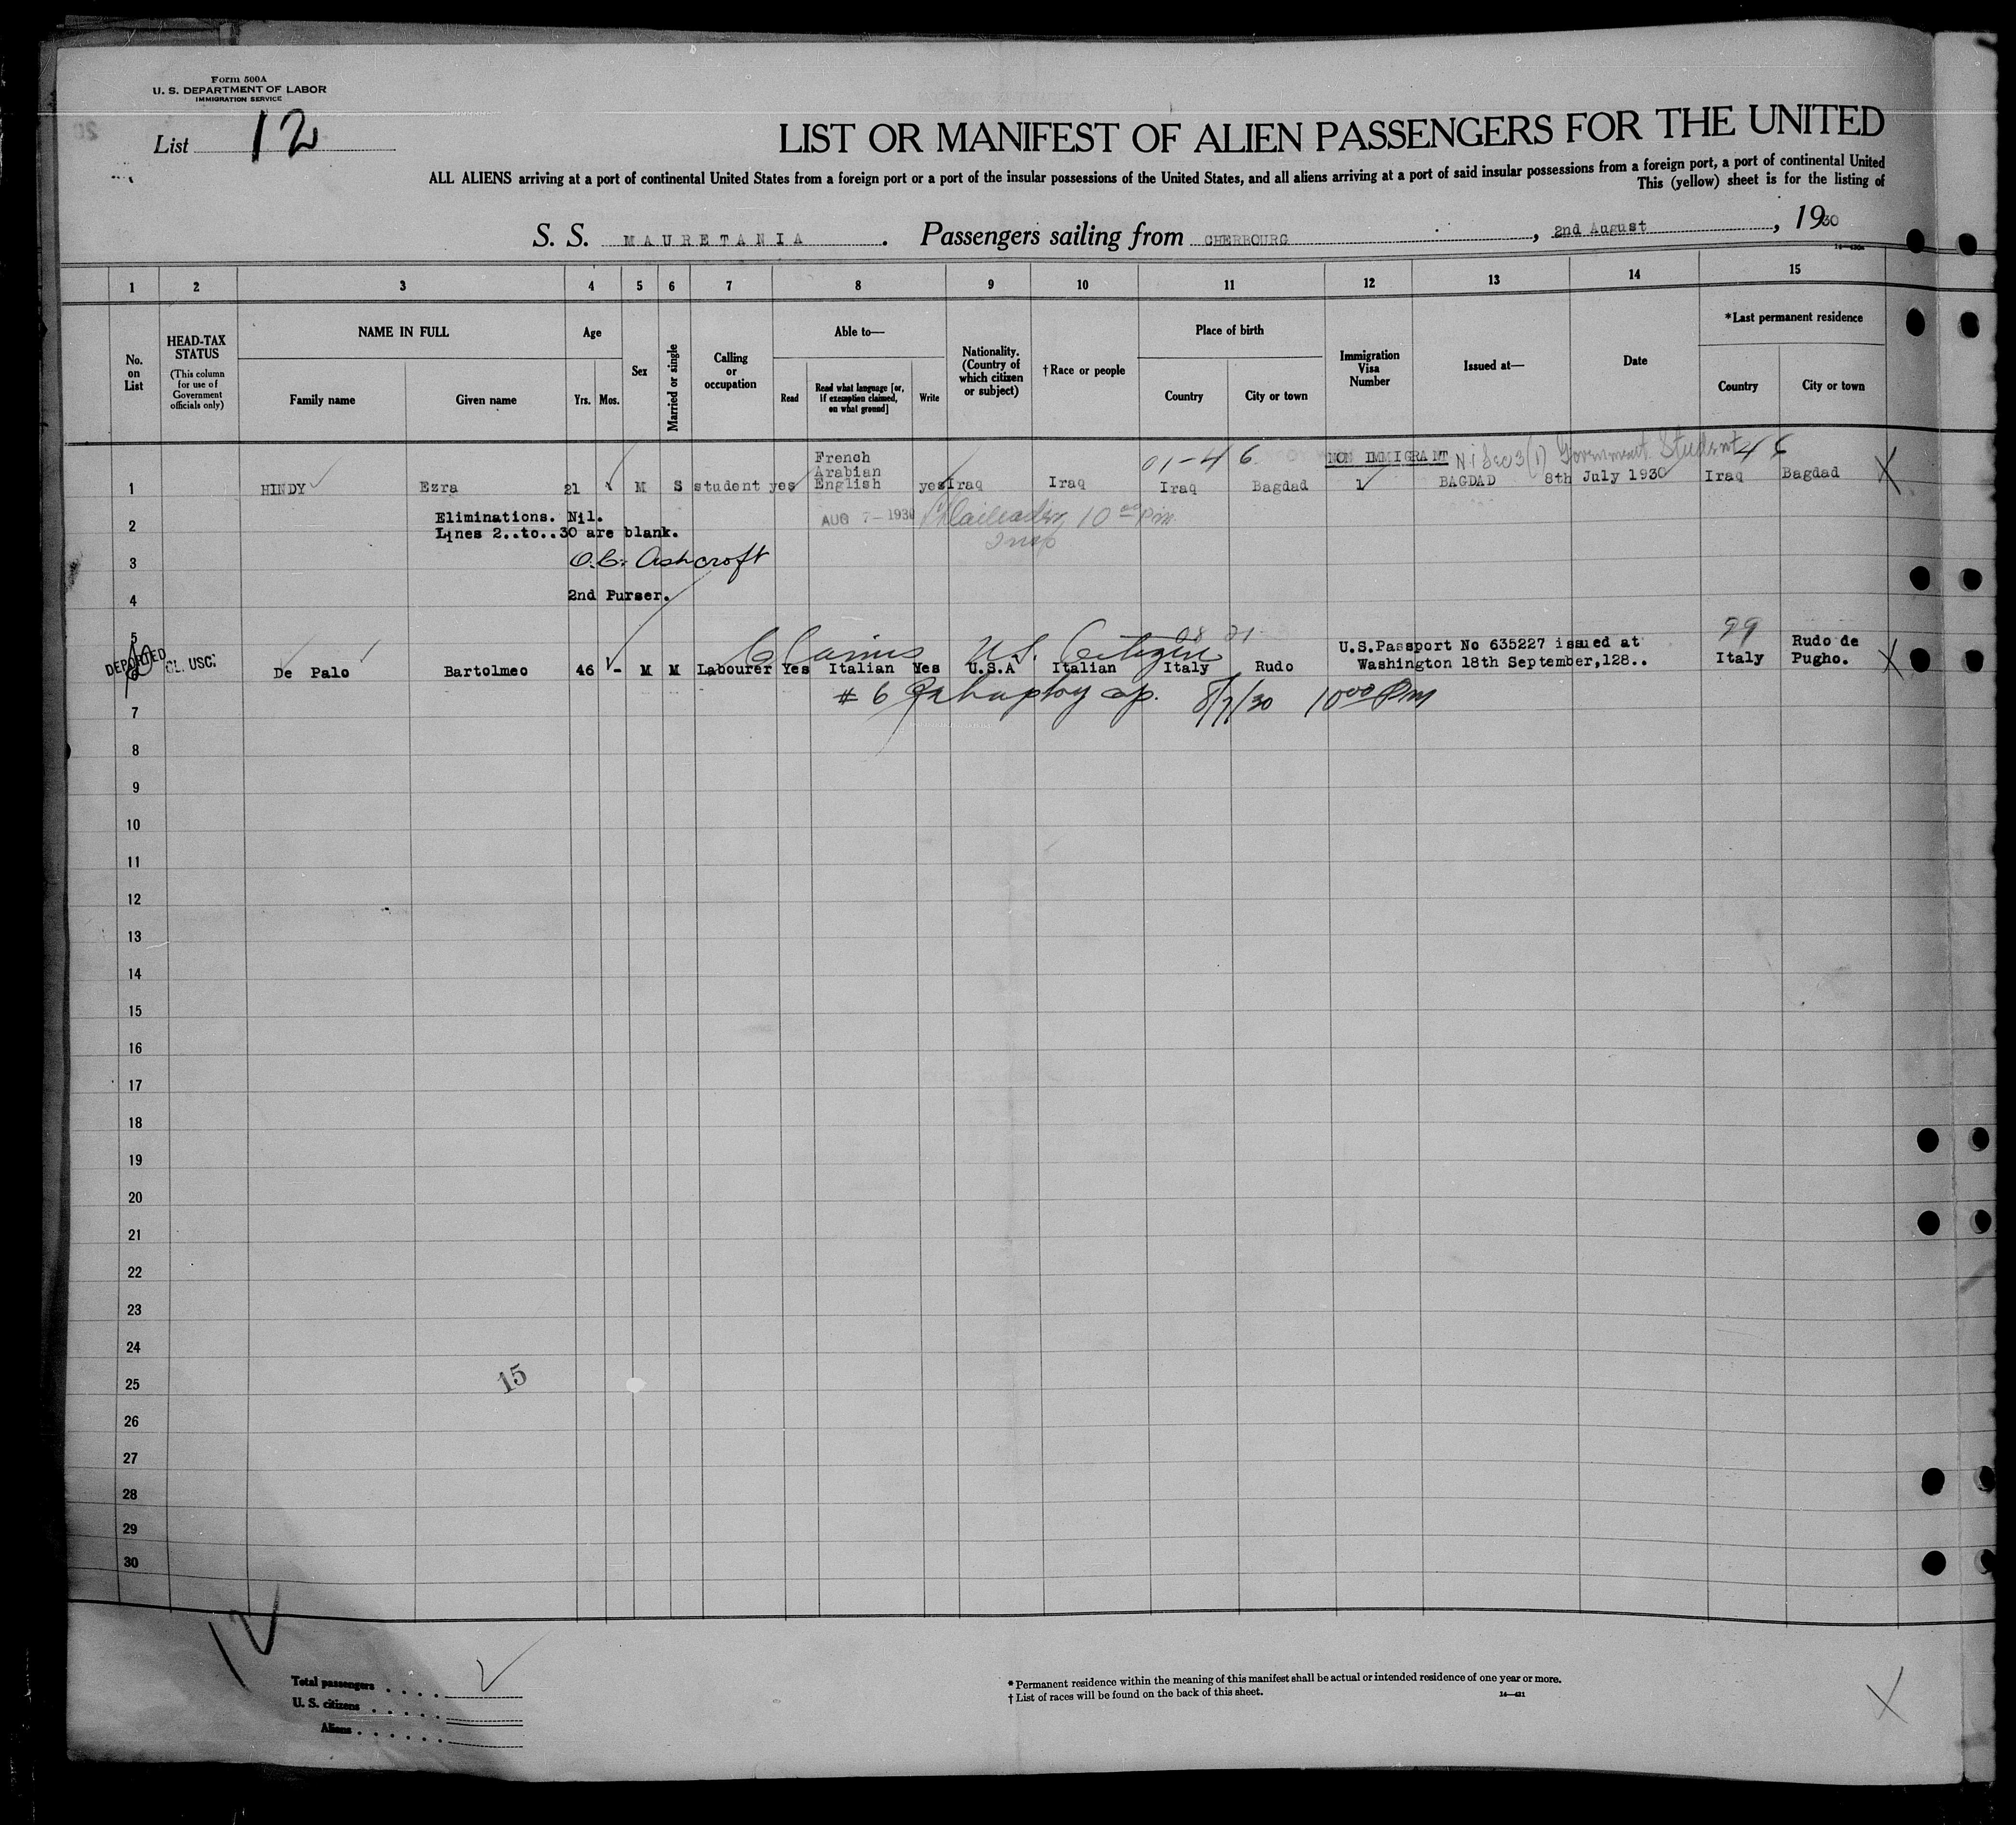 Form 500A
U. S. DEPARTMENT OF LABOR
IMMIGRATION SERVICE
List 12
LIST OR MANIFEST OF ALIEN PASSENGERS FOR THE UNITED
ALL ALIENS arriving at a port of continental United States from a foreign port or a port of the insular possessions of the United States, and all aliens arriving at a port of said insular possessions from a foreign port, a port of continental United
This (yellow) sheet is for the listing of
S. S. MAURETANIA . Passengers sailing from CHERBOURG , 2nd August , 1930
1 2 3 4 5 6 7 8 9 10 11 12 13 14 15
No. on List
HEAD-TAX STATUS
(This column for use of Government officials only)
NAME IN FULL
Family name
Given name
Age
Yrs. Mos.
Sex
Married or single
Calling or occupation
Able to—
Read
Read what language [or, if exemption claimed, on what ground]
Write
Nationality. (Country of which citizen or subject)
†Race or people
Place of birth
Country
City or town
Immigration Visa Number
Issued at—
Date
*Last permanent residence
Country
City or town
01-46 NON IMMIGRANT Government Student 46
1 HINDY Ezra 21 M S student yes French Arabian English yes Iraq Iraq Iraq Bagdad 1 BAGDAD 8th July 1930 Iraq Bagdad X
2 Eliminations. Nil. AUG 7-1930 10 00 pm
Lines 2..to..30 are blank. Insp
3 O.C. Ashcroft
4 2nd Purser.
5 Claims U.S. Citizen 99
DEPORTED CL. USC. De Palo Bartolmeo 46 - M M Labourer Yes Italian Yes U.S.A Italian Italy Rudo U.S.Passport No 635227 issued at Washington 18th September,128.. Italy Rudo de Pugho. X
# 6 8/7/30 10 00 PM
7
8
9
10
11
12
13
14
15
16
17
18
19
20
21
22
23
24
25
15
26
27
28
29
30
12
Total passengers
U. S. citizens
Aliens
* Permanent residence within the meaning of this manifest shall be actual or intended residence of one year or more.
† List of races will be found on the back of this sheet.
X